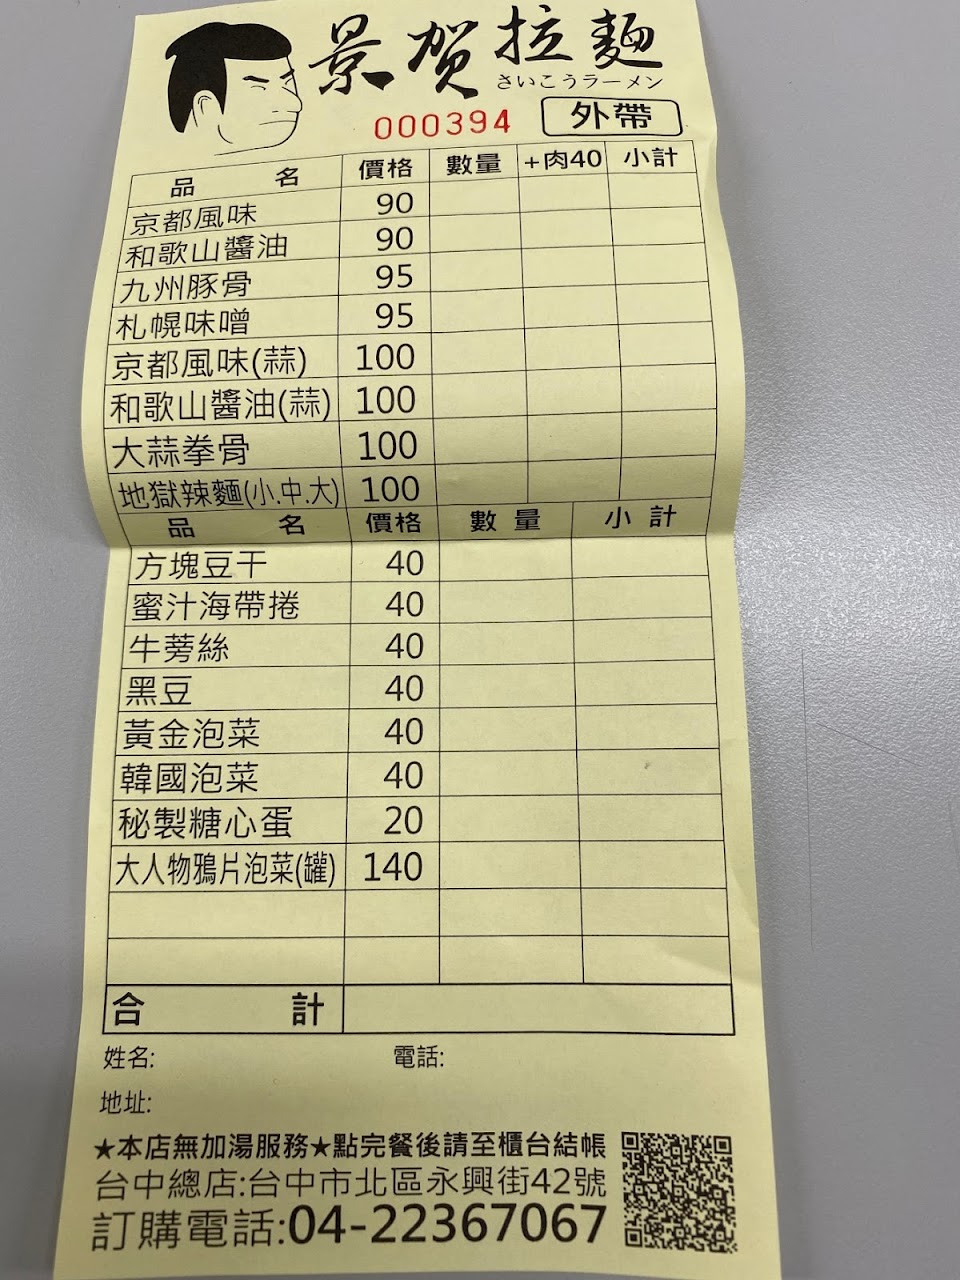 景賀拉麵
さいこうラーメン
000394 外帶
品名 價格 數量 +肉40 小計
京都風味 90
和歌山醬油 90
九州豚骨 95
札幌味噌 95
京都風味(蒜) 100
和歌山醬油(蒜) 100
大蒜拳骨 100
地獄辣麵(小.中.大) 100
品名 價格 數量 小計
方塊豆干 40
蜜汁海帶捲 40
牛蒡絲 40
黑豆 40
黃金泡菜 40
韓國泡菜 40
秘製糖心蛋 20
大人物鴉片泡菜(罐) 140
合計
姓名: 電話:
地址:
★本店無加湯服務★點完餐後請至櫃台結帳
台中總店:台中市北區永興街42號
訂購電話:04-22367067